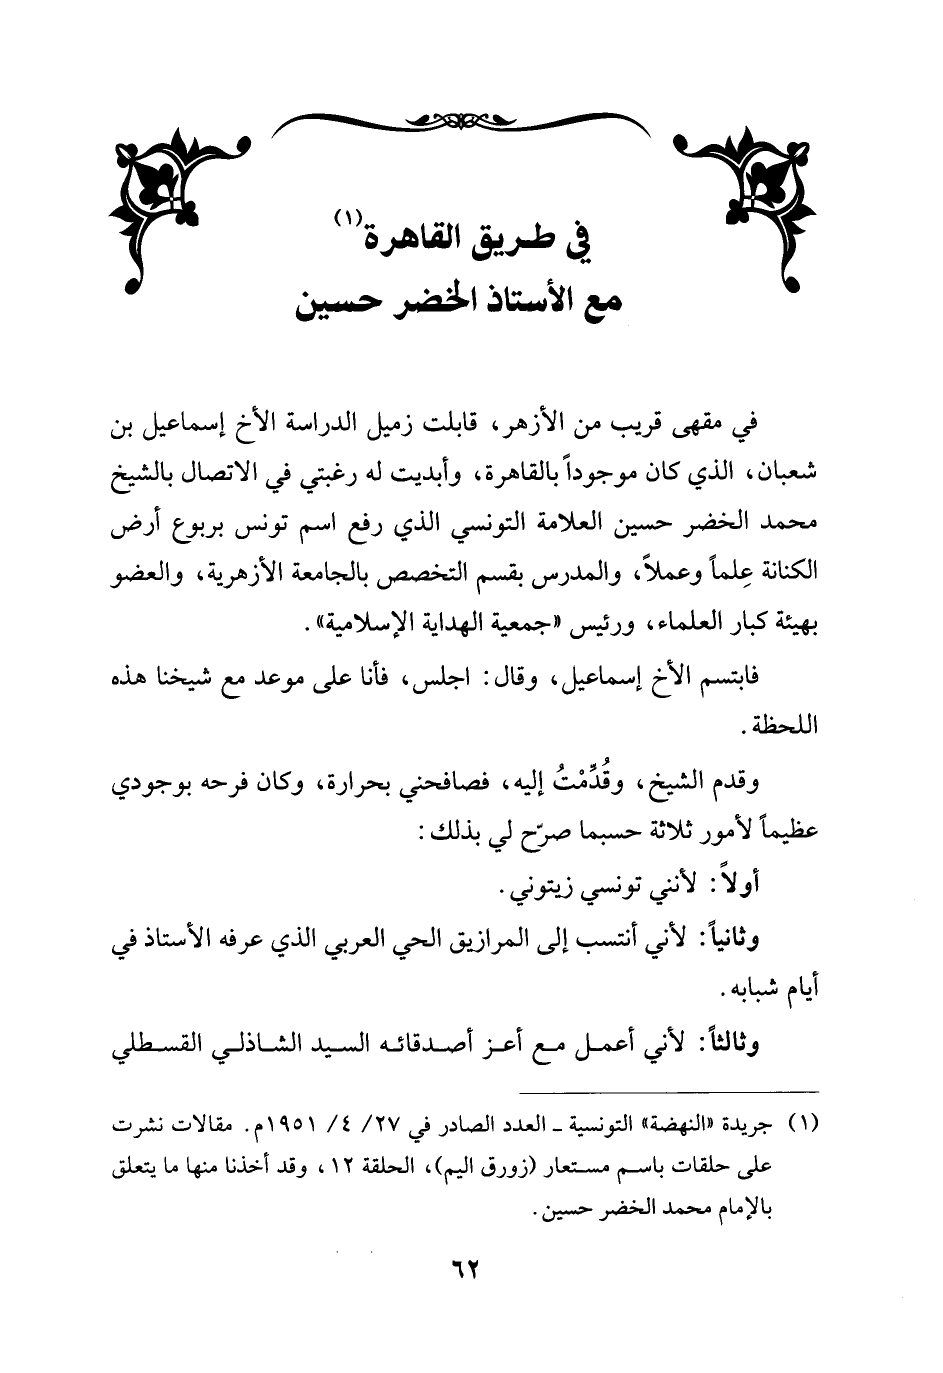 في طريق القاهرة(١)
مع الأستاذ الخضر حسين
في مقهى قريب من الأزهر، قابلت زميل الدراسة الأخ إسماعيل بن
شعبان، الذي كان موجوداً بالقاهرة، وأبديت له رغبتي في الاتصال بالشيخ
محمد الخضر حسين العلامة التونسي الذي رفع اسم تونس بربوع أرض
الكنانة عِلماً وعملاً، والمدرس بقسم التخصص بالجامعة الأزهرية، والعضو
بهيئة كبار العلماء، ورئيس «جمعية الهداية الإسلامية».
فابتسم الأخ إسماعيل، وقال: اجلس، فأنا على موعد مع شيخنا هذه
اللحظة.
وقدم الشيخ، وقُدِّمْتُ إليه، فصافحني بحرارة، وكان فرحه بوجودي
عظيماً لأمور ثلاثة حسبما صرّح لي بذلك:
أولاً: لأنني تونسي زيتوني.
وثانياً: لأني أنتسب إلى المرازيق الحي العربي الذي عرفه الأستاذ في
أيام شبابه.
وثالثاً: لأني أعمل مع أعز أصدقائه السيد الشاذلي القسطلي
(١) جريدة «النهضة» التونسية ـ العدد الصادر في ٢٧/ ٤/ ١٩٥١م. مقالات نشرت
على حلقات باسم مستعار (زورق اليم)، الحلقة ١٢، وقد أخذنا منها ما يتعلق
بالإمام محمد الخضر حسين.
٦٢